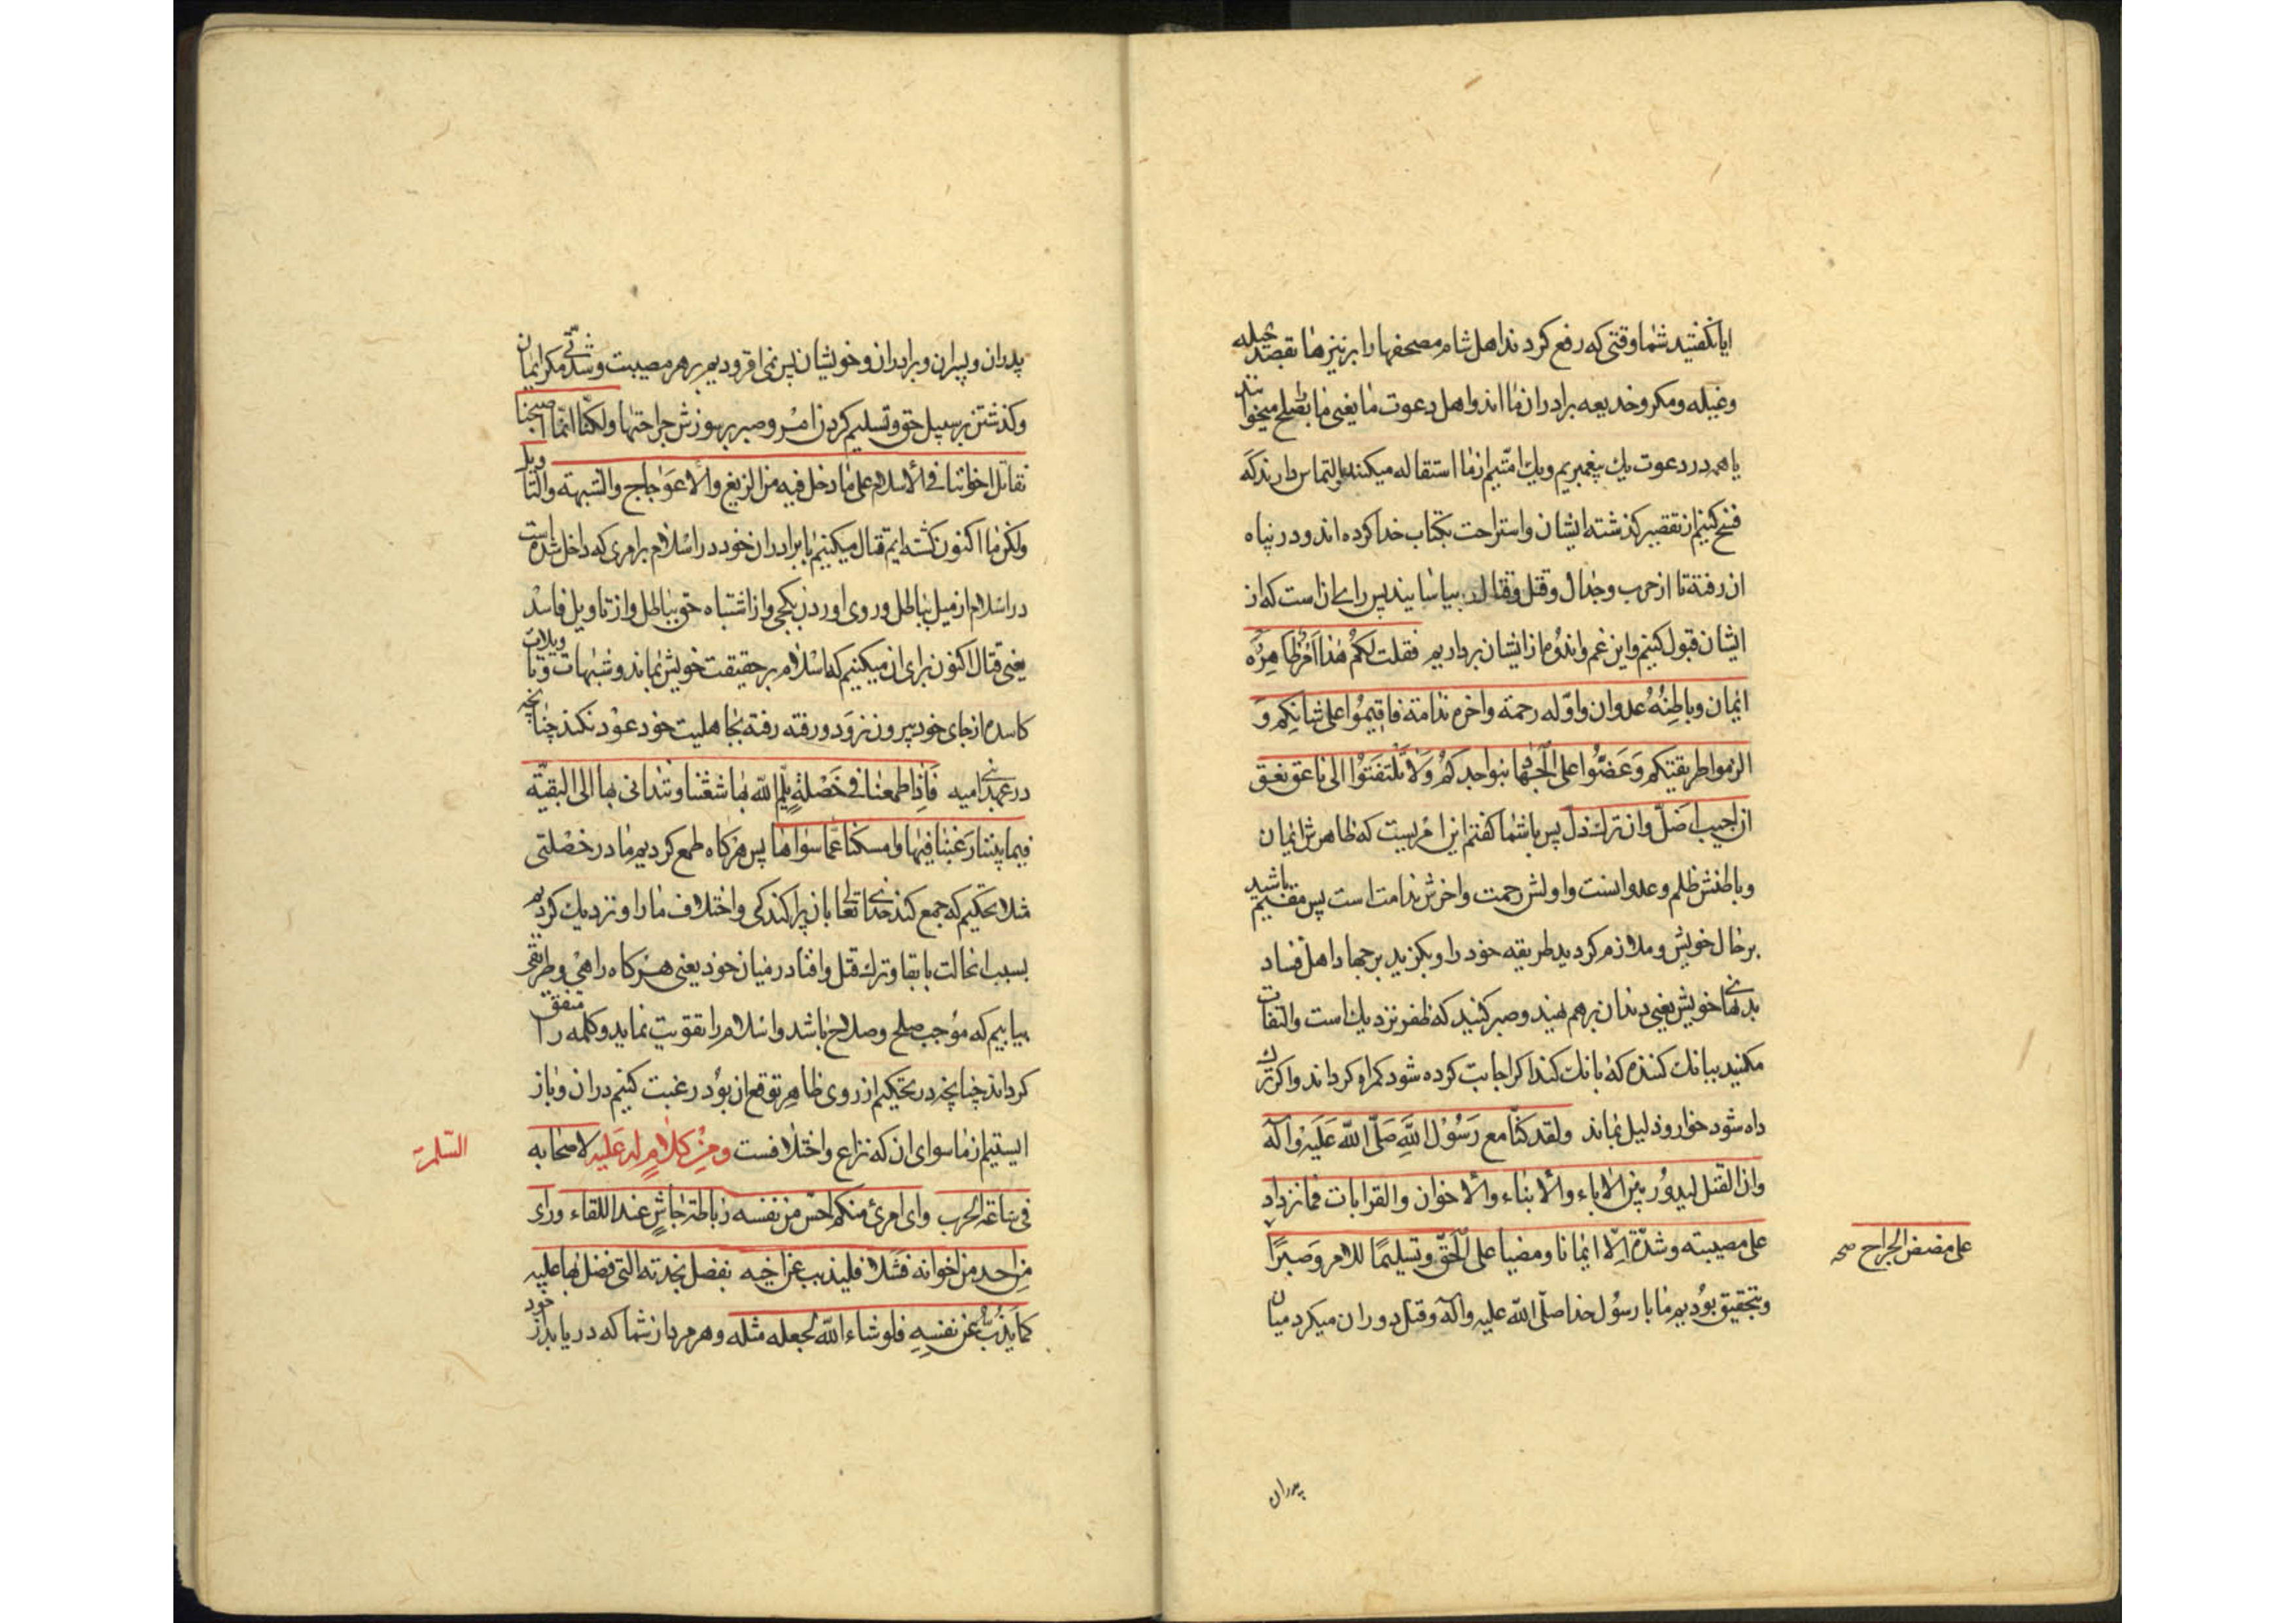 ایا نکفتید شما وقتی که رفع کردند اهل شام مصحفها را بر نیزها بقصد حیله
وغیله ومکر وخدیعه برادران ما اند واهل دعوت ما یعنی ما بصلح میخوانند
یا همه در دعوت یك پیغمبریم ویك امتیم از ما استقاله میکنند والتماس دارند که
فسخ کنیم از تقصیر کذشته ایشان واستراحت بکتاب خدا کرده اند ودر پناه
ان رفته تا از حرب وجدال وقتل وقتال بیاسایند پس رای ان است که از
ایشان قبول کنیم واین غم واندوه از ایشان برداریم فقلت لکم هذا امر ظاهره
ایمان وباطنه عدوان واوله رحمة واخره ندامة فاقیموا علی شانکم و
الزموا طریقتکم وعضوا علی الجهاد بنواجدکم ولا تلتفتوا الی ناعق نعق
ان اجیب اضل وان ترك ذل پس با شما کفتم این امریست که ظاهرش ایمان
وباطنش ظلم وعدوانست واولش رحمت واخرش ندامت است پس مقیم باشید
بر حال خویش وملازم کردید طریقه خود را وبکزید بر جهاد اهل فساد
بدندانهای خویش یعنی دندان برهم نهید وصبر کنید که ظفر نزدیك است والتفات
مکنید ببانك کننده که بانك کند اکر اجابت کرده شود کمراه کرداند واکر ترك
داده شود خوار وذلیل بماند ولقد کنا مع رسول الله صلی الله علیه واله
وان القتل لیدور بین الاباء والابناء والاخوان والقرابات فما نزداد
علی مصیبته وشدة الا ایمانا ومضیا علی الحق وتسلیما للامر وصبرا
علی مضض الجراح صح
وبتحقیق بودیم ما با رسول خدا صلی الله علیه واله وقتل دوران میکرد میان
پدران
پدران وپسران وبرادران وخویشان پس نمی افزودیم بر هر مصیبت وشدتی مکر ایمان
وکذشتن بر سبیل حق وتسلیم کردن امر وصبر بر سوزش جراحتها ولکنا انما اصبحنا
نقاتل اخواننا فی الاسلام علی ما دخل فیه من الزیغ والاعوجاج والشبهة والتاویل
ولکن ما اکنون کشته ایم قتال میکنیم با برادران خود در اسلام بر امری که داخل شده است
در اسلام از میل بباطل وروی اوردن بکجی واز اشتباه حق بباطل واز تاویل فاسد
یعنی قتال اکنون برای ان میکنیم که اسلام بر حقیقت خویش بماند وشبهات وتاویلات
کاسده از جای خود بیرون نرود ورفته رفته بجاهلیت خود عود نکند چنانچه
در عهد بنی امیه فاذا طمعنا فی خصلة یلم الله بها شعثنا ونتدانی بها الی البقیة
فیما بیننا رغبنا فیها وامسکنا عما سواها پس هرکاه طمع کردیم ما در خصلتی
مثلا تحکیم که جمع کند خدای تعالی بان پراکندکی واختلاف ما را ونزدیك کردیم
بسبب انحالت بابقا وترك قتل وافنا در میان خود یعنی هرکاه راهی وطریقی
بیابیم که موجب صلح وصلاح باشد واسلام را تقویت نماید وکلمه را متفق
کرداند چنانچه در تحکیم از روی ظاهر توقع ان بود رغبت کنیم دران وباز
ایستیم از ما سوای ان که نزاع واختلافست ومن کلام له علیه السلم لاصحابه
فی ساعة الحرب وای امرئ منکم احس من نفسه رباطة جاش عند اللقاء ورای
من احد من اخوانه فشلا فلیذب عن اخیه بفضل نجدته التی فضل بها علیه
کما یذب عن نفسه فلو شاء الله لجعله مثله وهر مرد از شما که دریابد از خود